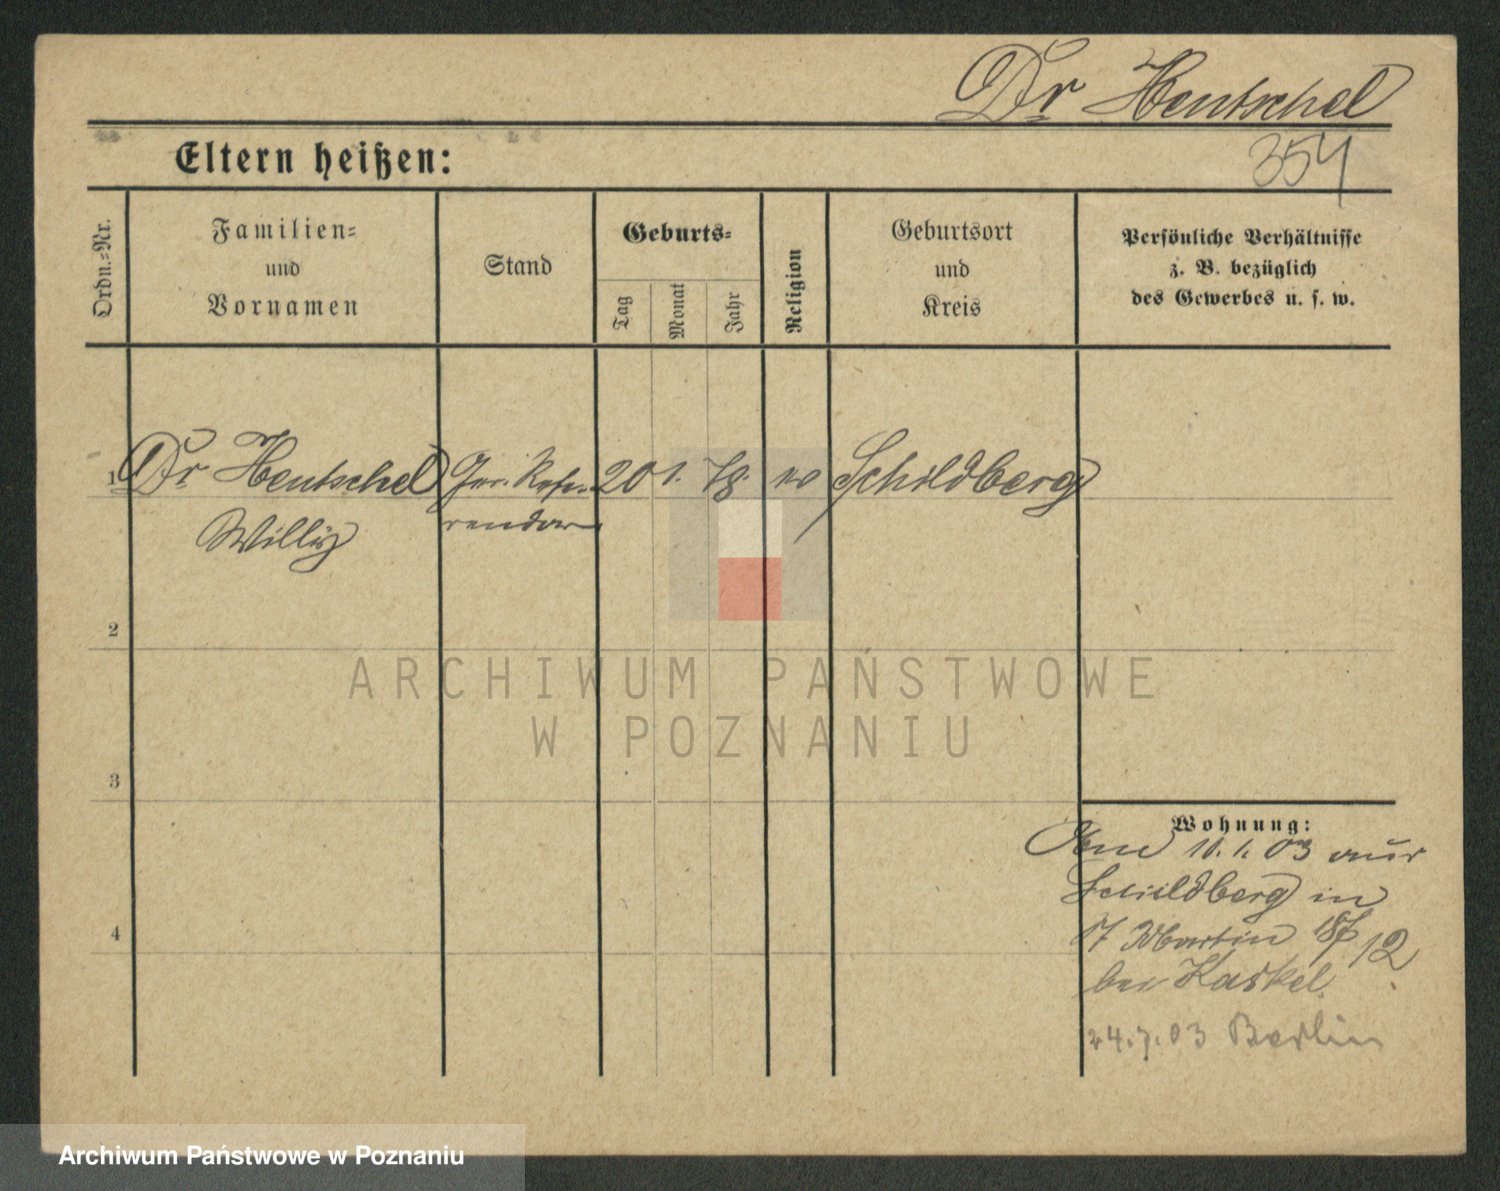 Dr Hentschel
354
Eltern heißen:
Ordn.-Nr.
Familien-
und
Vornamen
Stand
Geburts-
Tag
Monat
Jahr
Religion
Geburtsort
und
Kreis
Persönliche Verhältnisse
z. B. bezüglich
des Gewerbes u. s. w.
1 Dr Hentschel Ger. Refe- 20 1. 78. Schildberg
Willy rendar
2
ARCHIWUM PAŃSTWOWE
W POZNANIU
3
Wohnung:
10.1.03 aus
Schildberg in
St Martin 12
bei Haskel
24.7.03 Berlin
4
Archiwum Państwowe w Poznaniu